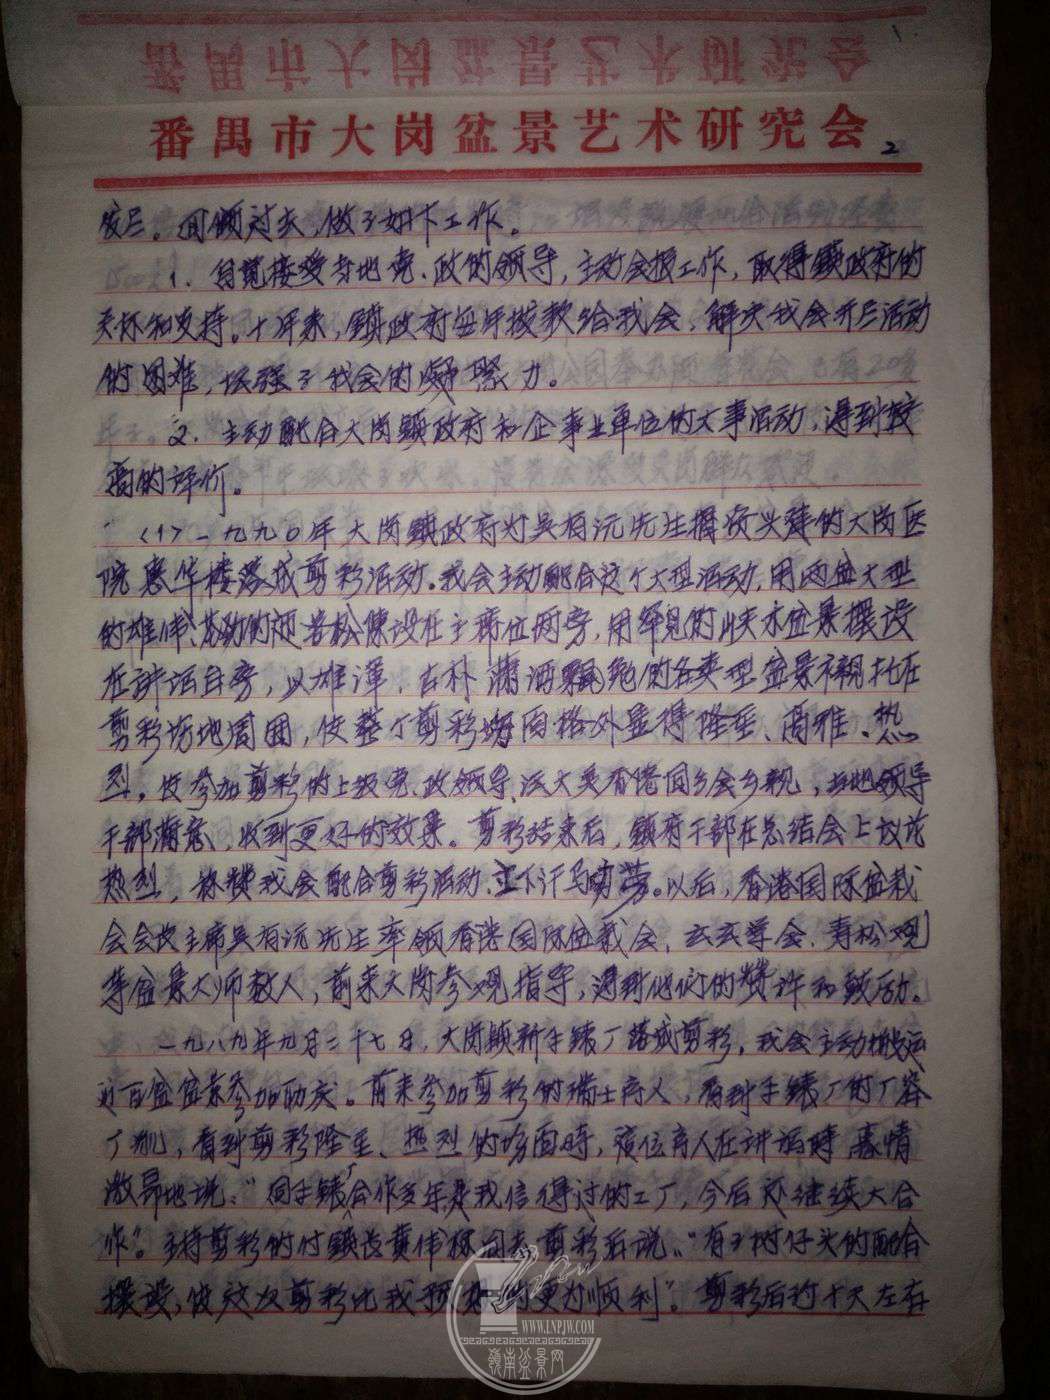 番禺市大岗盆景艺术研究会
番禺市大岗盆景艺术研究会 2
发芒。回顾过去，做了如下工作。
1、自觉接受当地党、政的领导，主动会报工作，取得镇政府的
关怀和支持。十年来，镇政府每年拨款给我会，解决我会开芒活动
的困难，加强了我会的凝聚力。
2、主动配合大岗镇政府和企事业单位的大事活动，得到较
高的评价。
〈1〉一九九〇年大岗镇政府对吴有沅先生捐资兴建的大岗医
院惠华楼落成剪彩活动。我会主动配合这个大型活动，用两盆大型
的雄伟、苍劲的松陈设在主席位两旁，用罕见的水盆景摆设
在讲话台旁，以雄浑、古朴潇洒飘逸的各类型盆景衬托在
剪彩场地周围，使整个剪彩场面格外显得隆重、高雅、热
烈，使参加剪彩的上级党、政领导、香港同乡会乡亲，当地领导
干部满意，收到更好的效果。剪彩结束后，镇府干部在总结会上议论
热烈，称赞我会配合剪彩活动，立下汗马功劳。以后，香港国际盆栽
会会长主席吴有沅先生率领香港国际盆栽会、玄玄学会、青松观
等盆景大师数人，前来大岗参观指导，得到他们的赞许和鼓励。
一九八九年九月二十七日，大岗镇新手錶厂落成剪彩，我会主动搬运
近百盆盆景参加助庆。前来参加剪彩的瑞士商人，看到手錶厂的厂容
厂貌，看到剪彩隆重、热烈的场面时，该位商人在讲话时 激情
激昂地说、“同手錶厂合作多年是我信得过的工厂，今后还继续大合
作”。主持剪彩的付镇长黄伟标同志剪彩后说、“有了树仔头的配合
摆设，使这次剪彩比我预的更为顺利”。剪彩后约十天左右
WWW.LNPJW.COM
嶺南盆景网